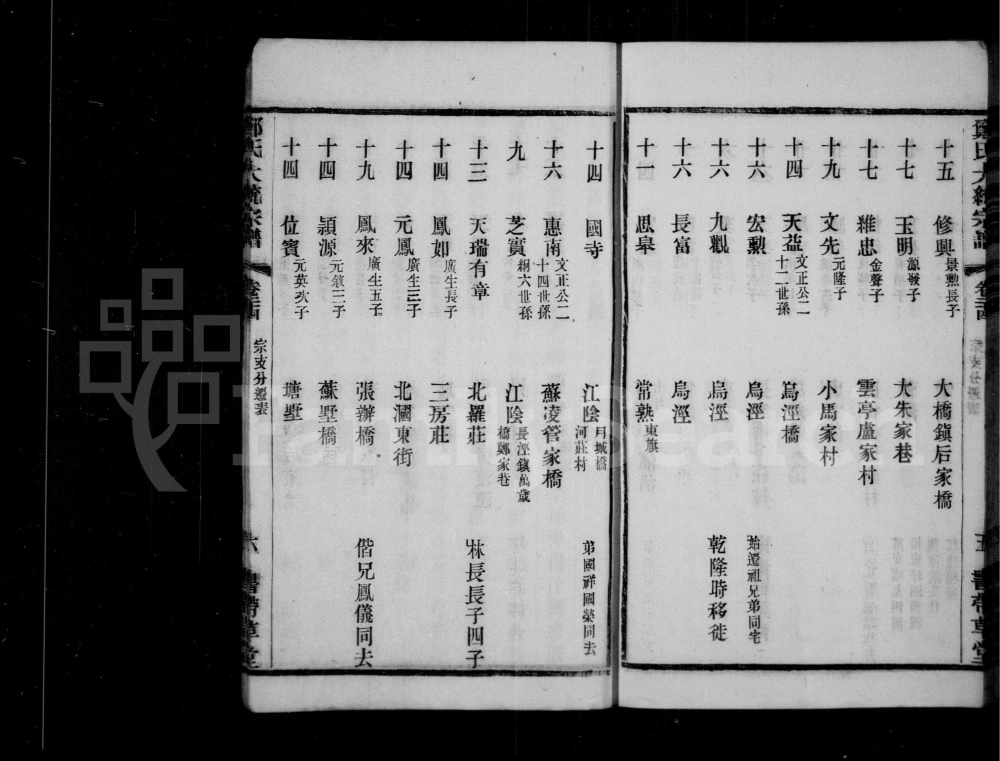 鄭氏大統宗譜 卷三四 宗支分遷表 五 書帶草堂
十五 修興 景勲長子 大橋鎮后家橋
十七 玉明 源發子 大朱家巷
十七 維忠 金聲子 雲亭盧家村
十九 文先 元隆子 小馬家村
十四 天益 文正公二十二世孫 烏涇橋
十六 宏勲 烏涇 始遷祖兄弟同宅
十六 九觀 烏涇 乾隆時移徙
十六 長富 烏涇
十四 思皋 常熟 東旗
十四 國寺 江陰 月城橋河莊村 弟國祥國榮同去
十六 惠南 文正公二十四世孫 蘇凌管家橋
九 芝實 綱六世孫 江陰 長涇鎮萬歲橋鄭家巷
十三 天瑞 有章 北羅莊 林長長子四子
十四 鳳如 廣生長子 三房莊
十四 元鳳 廣生三子 北漍東街
十九 鳳來 廣生五子 張辦橋 偕兄鳳儀同去
十四 頴源 元敘三子 蘇墅橋
十四 位賓 元英次子 塘墅
鄭氏大統宗譜 卷三四 宗支分遷表 六 書帶草堂
familysearch